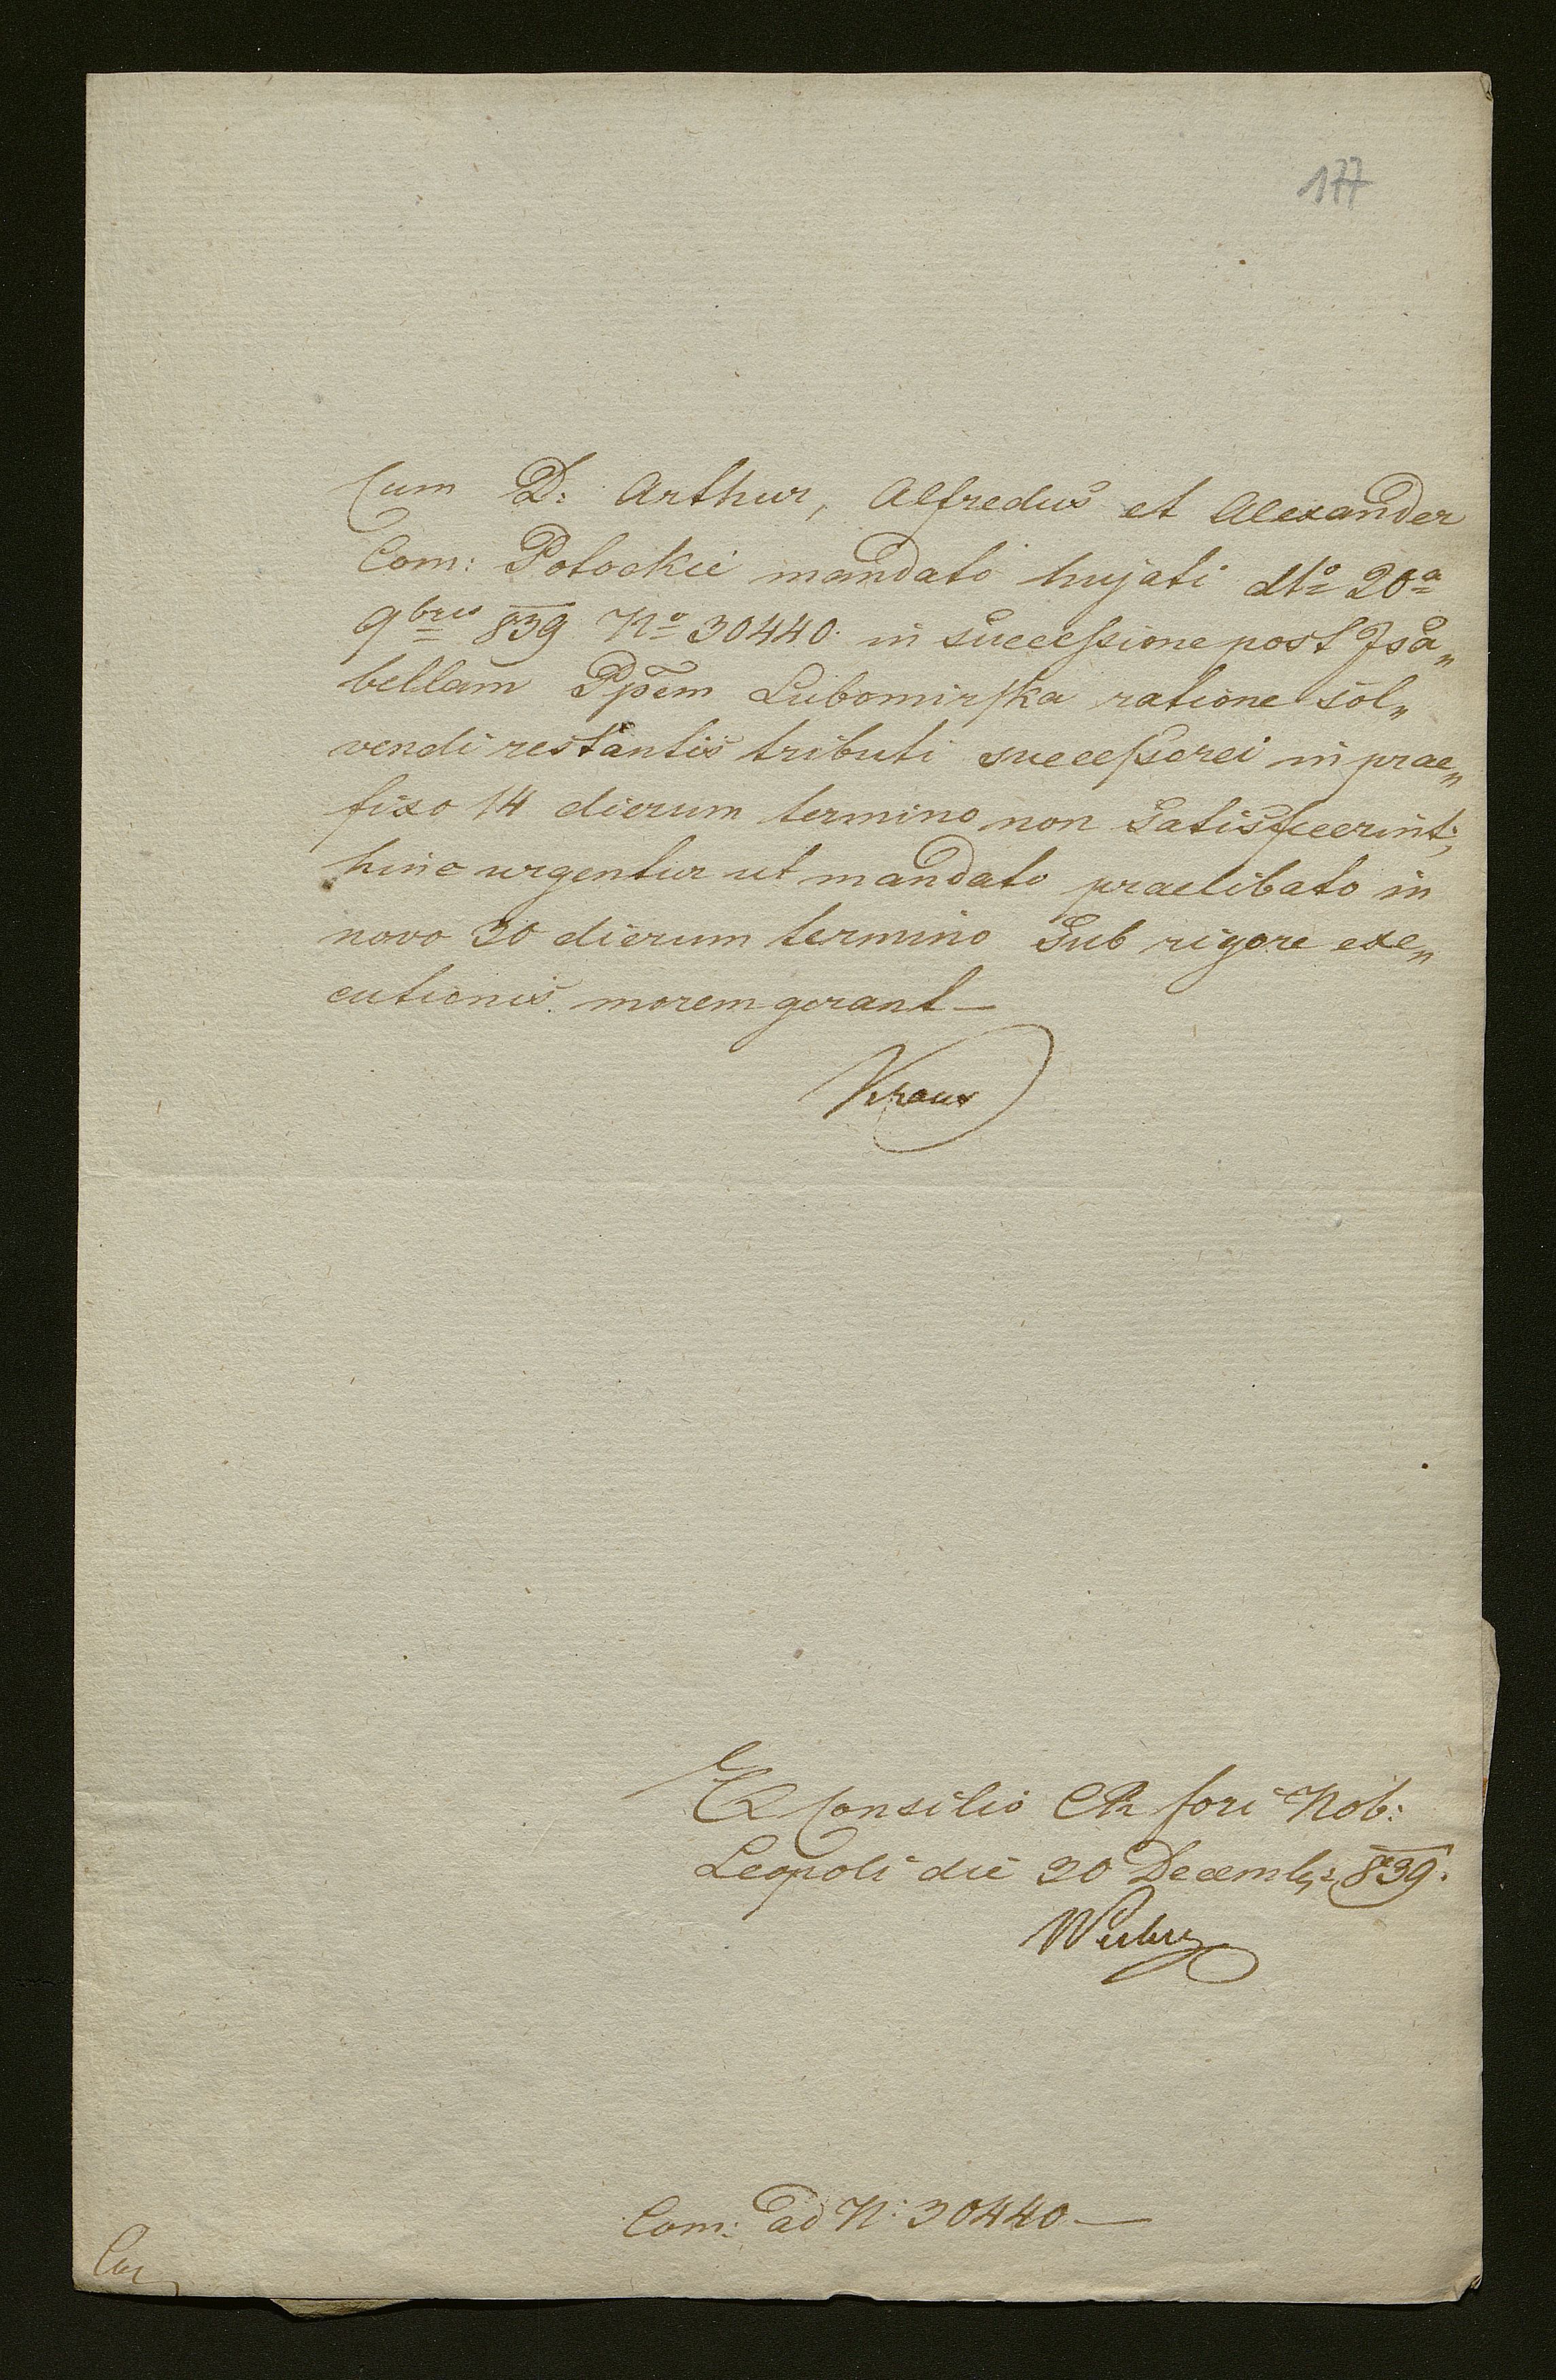 177
Cum D: Arthur, Alfredus et Alexander
Com: Potockie mandato hujati dto 20a
9bris 839 No 30440. in successione post Isa„
bellam Ppem Lubomirska ratione sol„
vendi restantis tributi successorei in prae„
fixo 14 dierum termino non Satisfecerint;
hinc urgentur ut mandato praelibato in
novo 30 dierum termino Sub rigore exe„
cutionis morem gerant—
Kraus
Ex Consilio CR fori Nob:
Leopoli die 30 Decemb: 839.
Com: ad N: 30440—